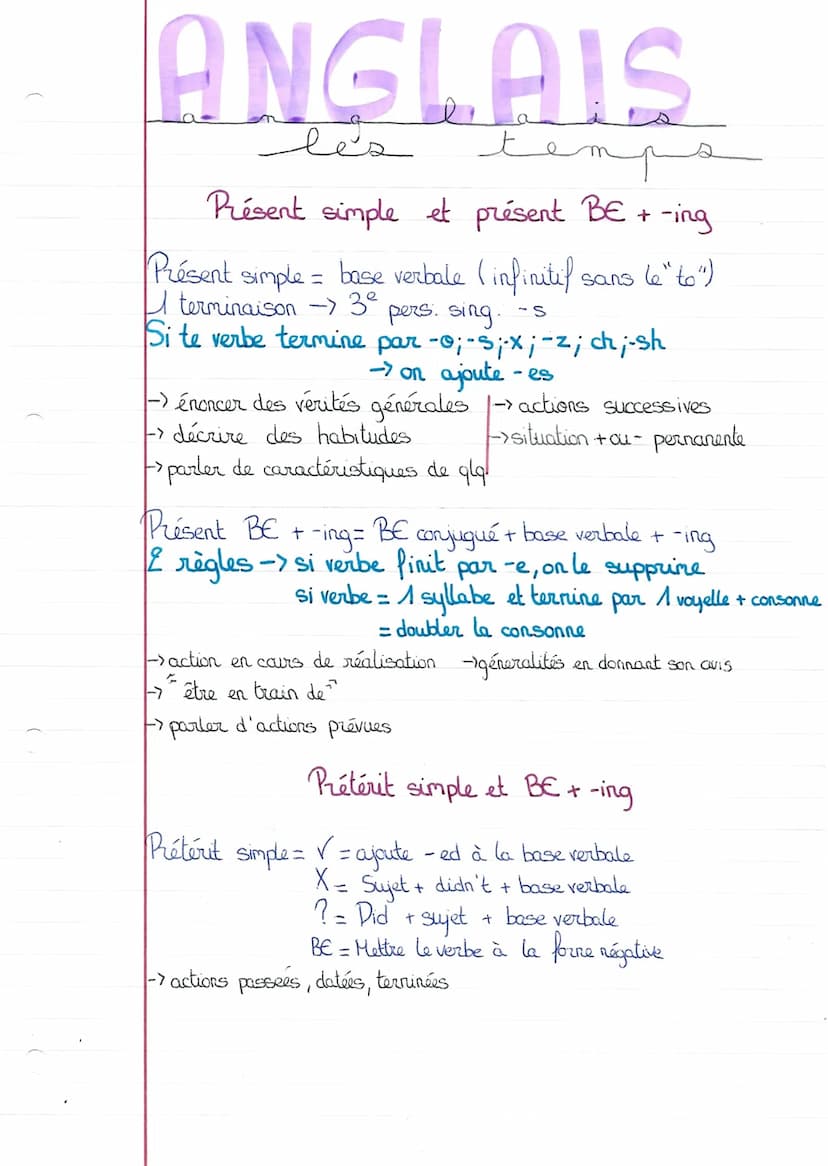 ANGLAIS
anglais
les temps
Présent simple et présent BE + -ing
Présent simple = base verbale (infinitif sans le "to")
1 terminaison -> 3e pers. sing. -s
Si te verbe termine par -o; -s; -x; -z; ch; -sh
-> on ajoute -es
-> énoncer des vérités générales -> actions successives
-> décrire des habitudes -> situation + ou - permanente
-> parler de caractéristiques de qlq
Présent BE + -ing = BE conjugué + base verbale + -ing
2 règles -> si verbe finit par -e, on le supprime
si verbe = 1 syllabe et termine par 1 voyelle + consonne
= doubler la consonne
-> action en cours de réalisation -> généralités en donnant son avis
-> "être en train de"
-> parler d'actions prévues
Prétérit simple et BE + -ing
Prétérit simple = √ = ajoute -ed à la base verbale
X = Sujet + didn't + base verbale
? = Did + sujet + base verbale
BE = Mettre le verbe à la forme négative
-> actions passées, datées, terminées